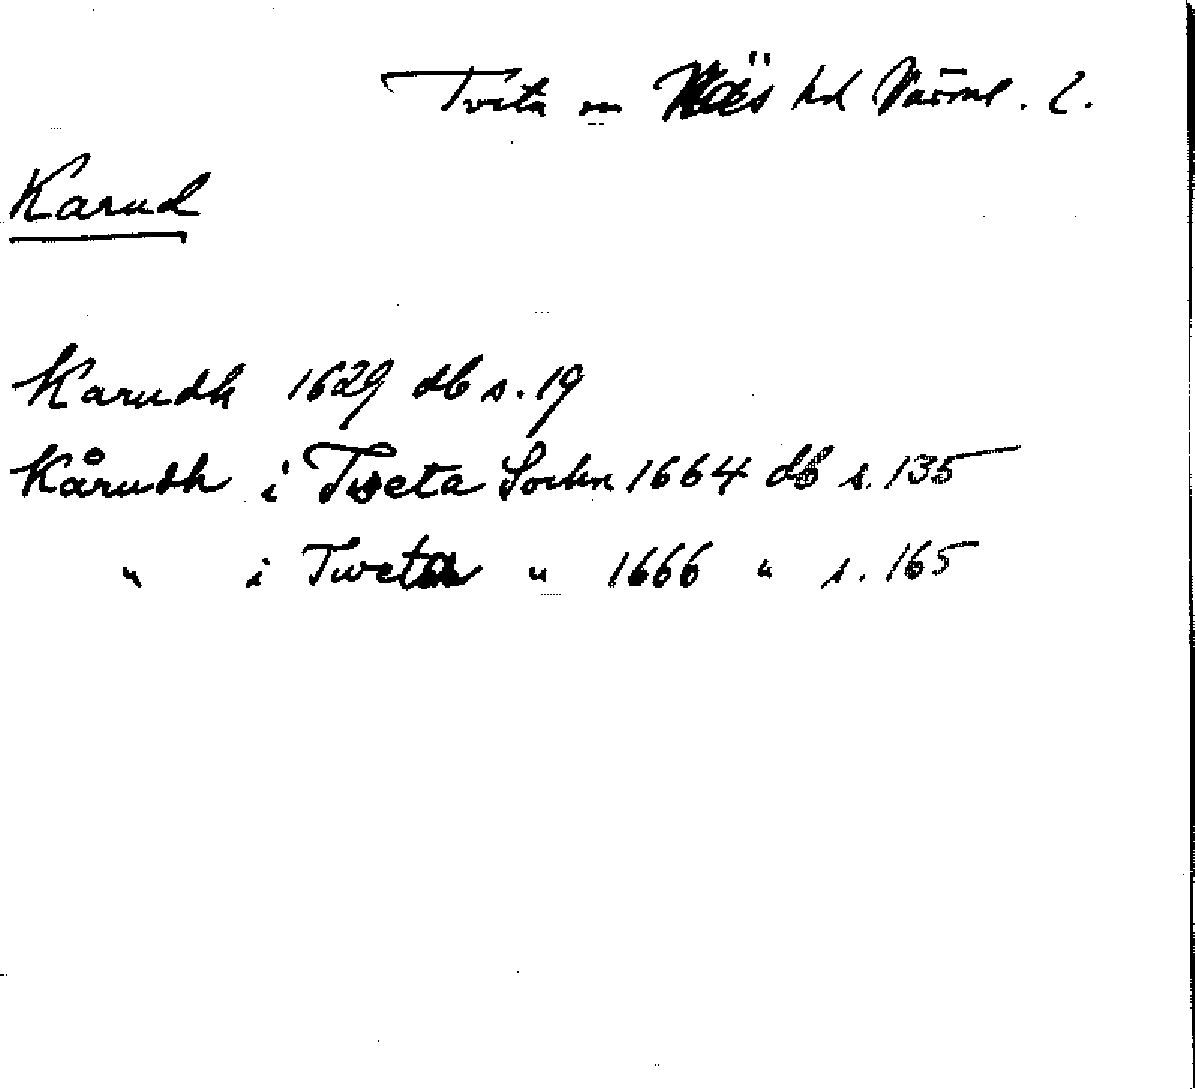 Tveta sn Näs hd Värml. l.
Karud
Karudh 1629 db s. 19
Kårudh i Tweta Sochn 1664 db s. 135
" i Tweta " 1666 " s. 165